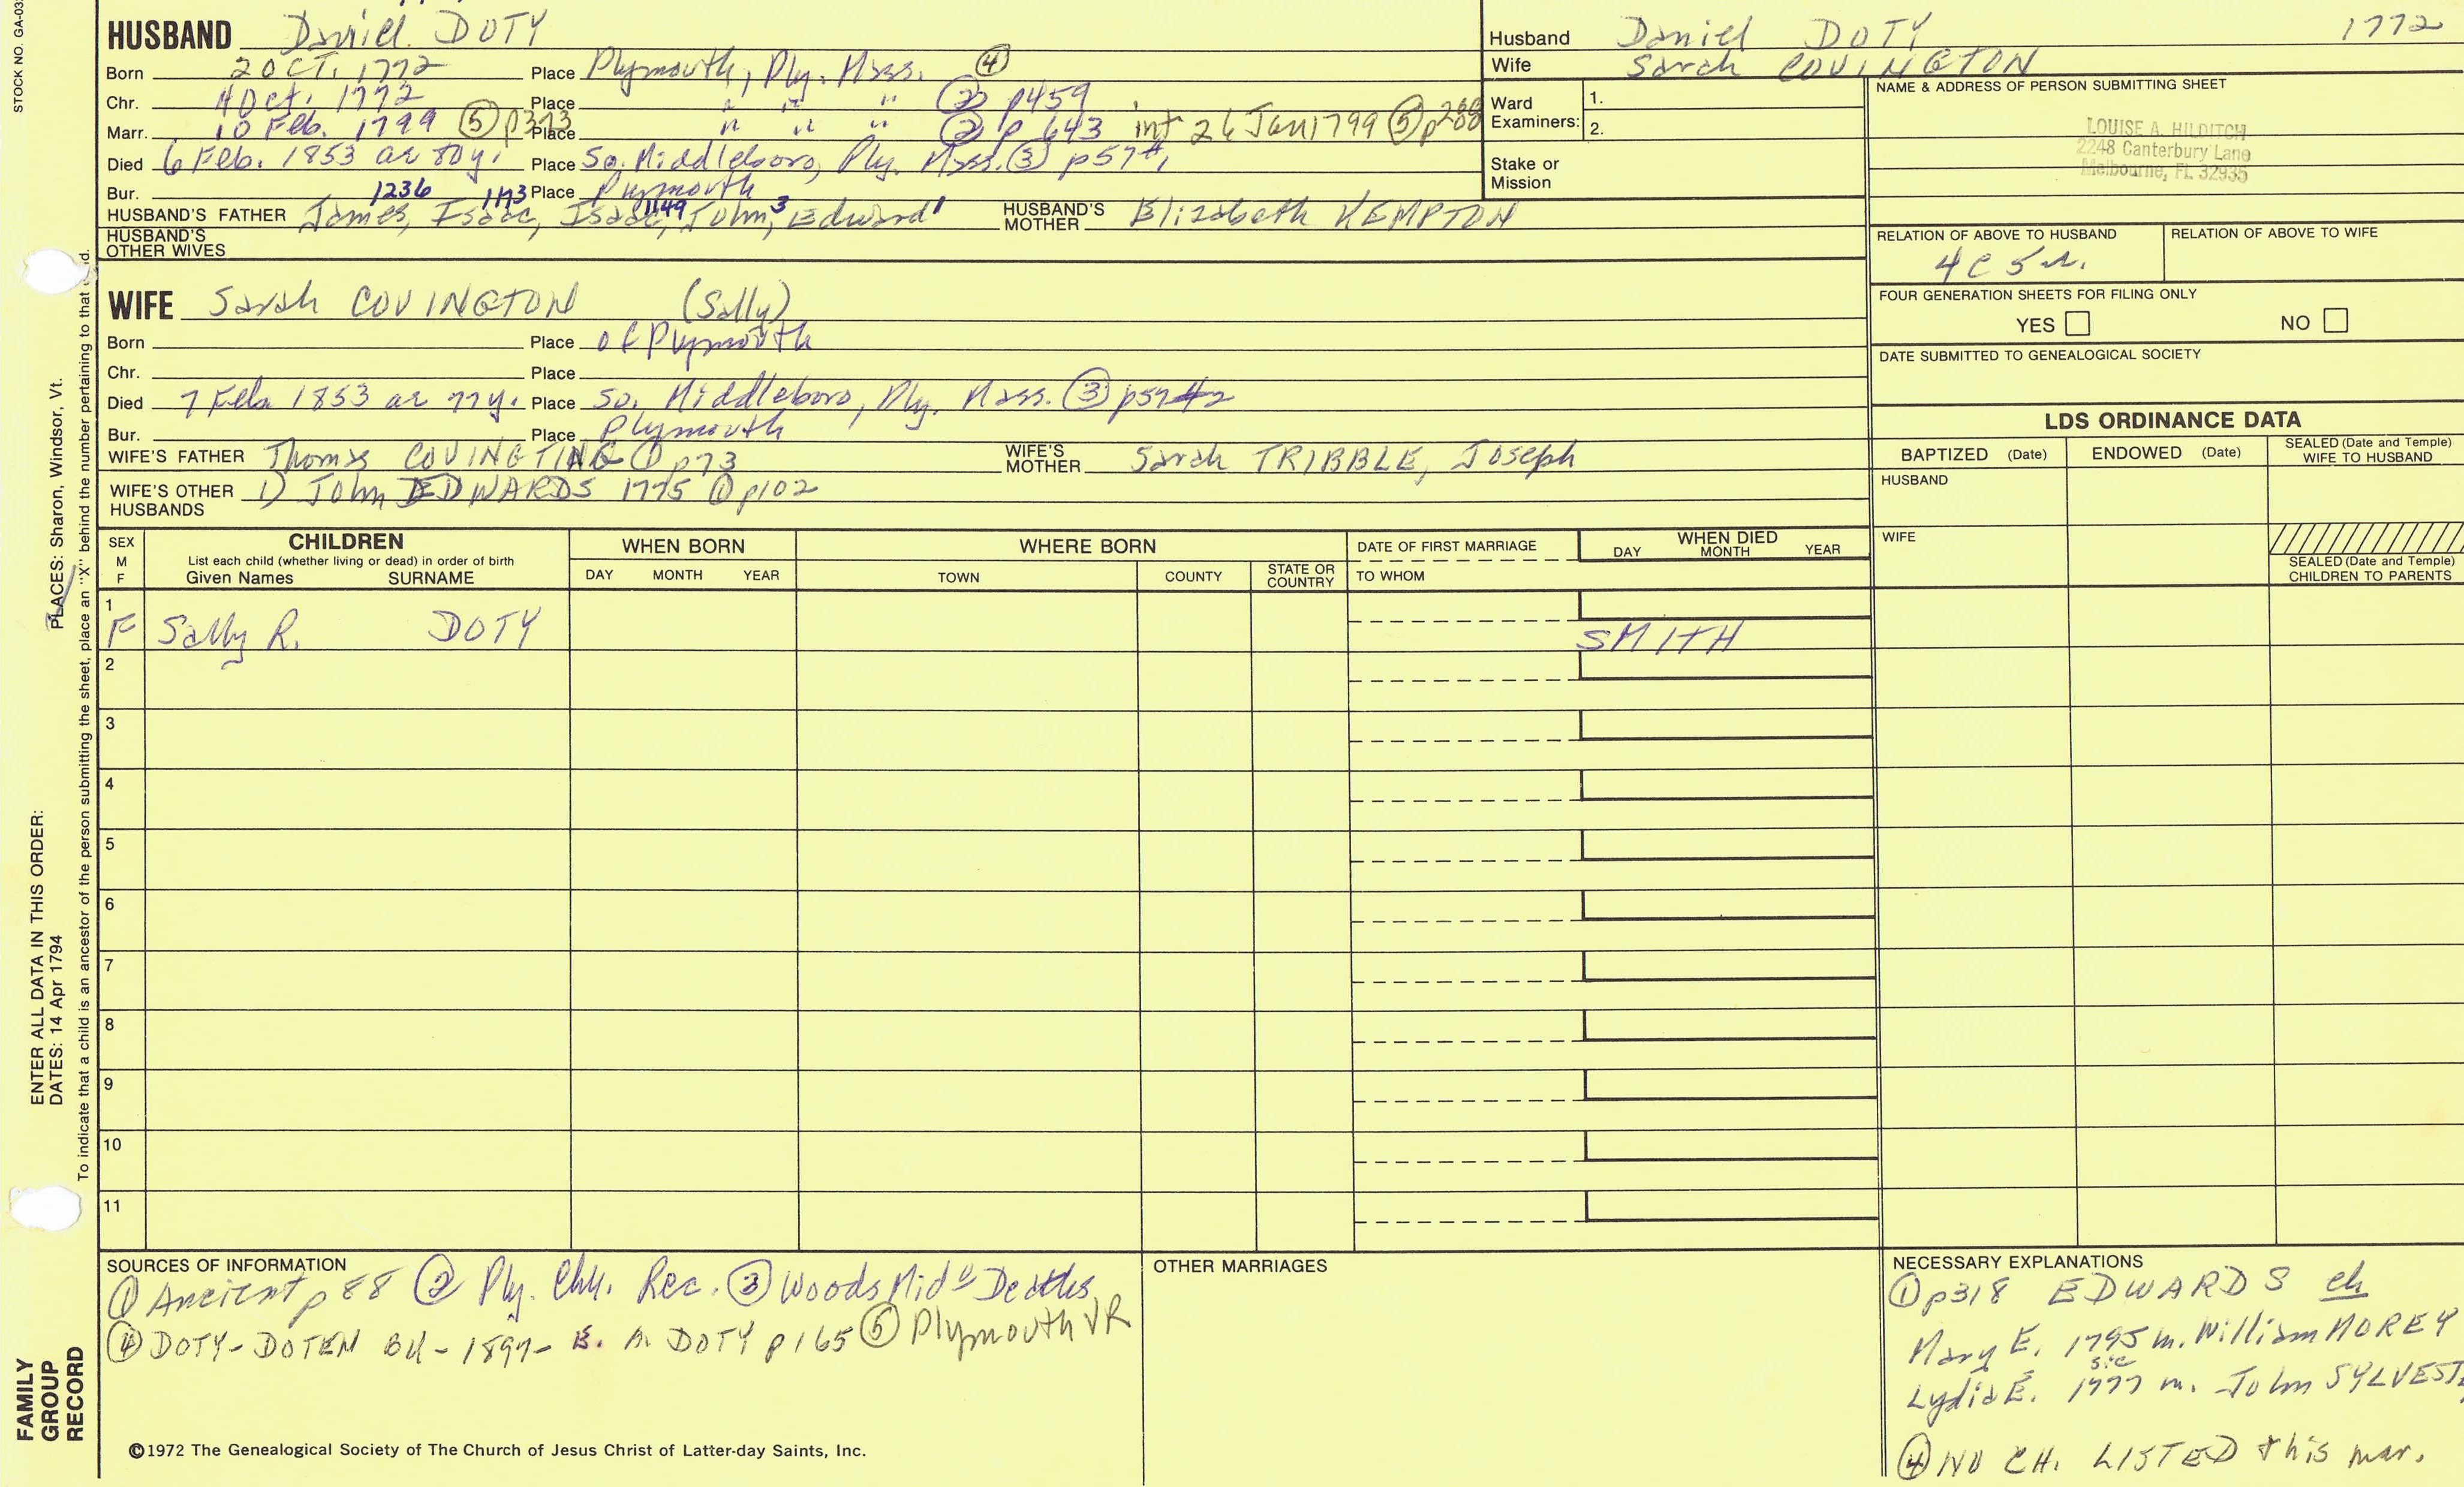 STOCK NO. GA-03
HUSBAND Daniel DOTY
Born 2 OCT. 1772 Place Plymouth, Ply. Mass. ④
Chr. 4 Oct. 1772 Place " " " ② p459
Marr. 10 Feb. 1799 ⑤ p373 Place " " " ② p 643 int 26 Jan 1799 ⑤ p
Died 6 Feb. 1853 ae 80y. Place So. Middleboro, Ply. Mass. ③ p57
Bur. Place Plymouth
1236 1173 1149
HUSBAND'S FATHER James, Isaac, Isaac, John,³ Edward¹ HUSBAND'S MOTHER Elizabeth KEMPTON
HUSBAND'S OTHER WIVES
Husband Daniel DOTY 1772
Wife Sarah COVINGTON
Ward Examiners: 1.
2.
Stake or Mission
NAME & ADDRESS OF PERSON SUBMITTING SHEET
LOUISE A. HILDITCH
2248 Canterbury Lane
Melbourne, FL 32935
RELATION OF ABOVE TO HUSBAND RELATION OF ABOVE TO WIFE
4C 5r.
FOUR GENERATION SHEETS FOR FILING ONLY
YES NO
DATE SUBMITTED TO GENEALOGICAL SOCIETY
WIFE Sarah COVINGTON (Sally)
Born Place of Plymouth
Chr. Place
Died 7 Feb 1853 ae 77y. Place So. Middleboro, Ply. Mass. ③ p57 #2
Bur. Place Plymouth
WIFE'S FATHER Thomas COVINGTING ① p73 WIFE'S MOTHER Sarah TRIBBLE, Joseph
WIFE'S OTHER HUSBANDS 1) John EDWARDS 1775 ① p102
LDS ORDINANCE DATA
BAPTIZED (Date) ENDOWED (Date) SEALED (Date and Temple) WIFE TO HUSBAND
HUSBAND
WIFE
SEALED (Date and Temple) CHILDREN TO PARENTS
SEX M F
CHILDREN
List each child (whether living or dead) in order of birth
Given Names SURNAME
WHEN BORN
DAY MONTH YEAR
WHERE BORN
TOWN COUNTY STATE OR COUNTRY
DATE OF FIRST MARRIAGE
TO WHOM
WHEN DIED
DAY MONTH YEAR
1
F Sally R. DOTY SMITH
2
3
4
5
6
7
8
9
10
11
SOURCES OF INFORMATION
① Ancient p 88 ② Ply. Chu. Rec. ③ Woods Mid⁰ Deaths
④ DOTY-DOTEN BK - 1897- E. A. DOTY p 165 ⑤ Plymouth VR
©1972 The Genealogical Society of The Church of Jesus Christ of Latter-day Saints, Inc.
OTHER MARRIAGES
NECESSARY EXPLANATIONS
① p318 EDWARDS ch
Mary E. 1795 m. William MOREY
sic
Lydia E. 1777 m. John SYLVEST
④ NO CH. LISTED this mar.
ENTER ALL DATA IN THIS ORDER:
DATES: 14 Apr 1794 PLACES: Sharon, Windsor, Vt.
To indicate that a child is an ancestor of the person submitting the sheet, place an "X" behind the number pertaining to that
FAMILY
GROUP
RECORD